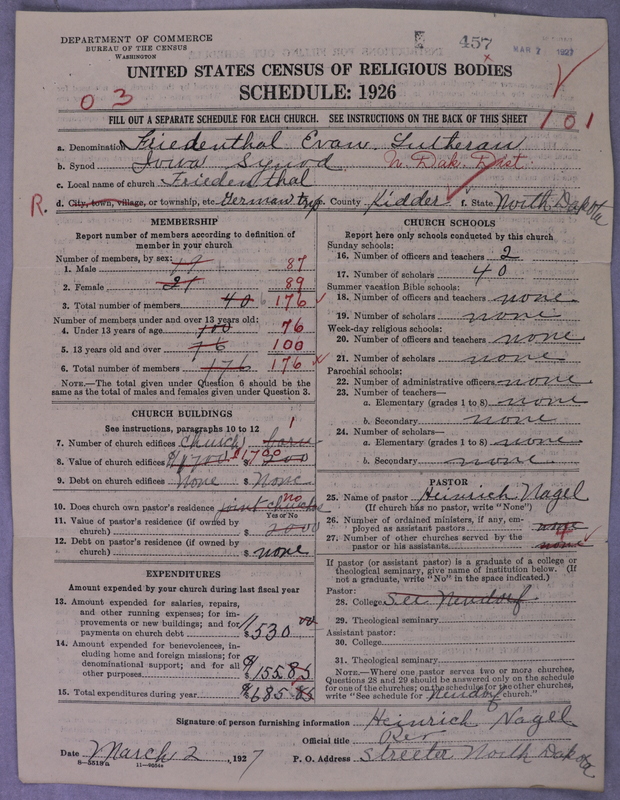 DEPARTMENT OF COMMERCE
BUREAU OF THE CENSUS
WASHINGTON
457
MAR 2 1927
UNITED STATES CENSUS OF RELIGIOUS BODIES
SCHEDULE: 1926
03
FILL OUT A SEPARATE SCHEDULE FOR EACH CHURCH. SEE INSTRUCTIONS ON THE BACK OF THIS SHEET
101
a. Denomination Friedenthal Evan. Lutheran
b. Synod Iowa Synod N. Dak. Dist.
c. Local name of church Friedenthal
R. d. City, town, village, or township, etc. German twp. e. County Kidder f. State North Dakota
MEMBERSHIP
Report number of members according to definition of
member in your church
Number of members, by sex:
1. Male 87
2. Female 21 89
3. Total number of members 40 176
Number of members under and over 13 years old:
4. Under 13 years of age 100 76
5. 13 years old and over 76 100
6. Total number of members 176 176
NOTE.—The total given under Question 6 should be the
same as the total of males and females given under Question 3.
CHURCH BUILDINGS
See instructions, paragraphs 10 to 12
7. Number of church edifices church 1
8. Value of church edifices $1700 $1700 $ 200
9. Debt on church edifices None $ None
10. Does church own pastor's residence joint church no
Yes or No
11. Value of pastor's residence (if owned by
church) $ 2000
12. Debt on pastor's residence (if owned by
church) $ none
EXPENDITURES
Amount expended by your church during last fiscal year
13. Amount expended for salaries, repairs,
and other running expenses; for im-
provements or new buildings; and for
payments on church debt $ 530 00
14. Amount expended for benevolences, in-
cluding home and foreign missions; for
denominational support; and for all
other purposes $ 155.85
15. Total expenditures during year $ 685.85
CHURCH SCHOOLS
Report here only schools conducted by this church
Sunday schools:
16. Number of officers and teachers 2
17. Number of scholars 40
Summer vacation Bible schools:
18. Number of officers and teachers none
19. Number of scholars none
Week-day religious schools:
20. Number of officers and teachers none
21. Number of scholars none
Parochial schools:
22. Number of administrative officers none
23. Number of teachers—
a. Elementary (grades 1 to 8) none
b. Secondary none
24. Number of scholars—
a. Elementary (grades 1 to 8) none
b. Secondary none
PASTOR
25. Name of pastor Heinrich Nagel
(If church has no pastor, write "None")
26. Number of ordained ministers, if any, em-
ployed as assistant pastors none
27. Number of other churches served by the
pastor or his assistants none 4
If pastor (or assistant pastor) is a graduate of a college or
theological seminary, give name of institution below. (If
not a graduate, write "No" in the space indicated.)
Pastor:
28. College See Neudorf
29. Theological seminary
Assistant pastor:
30. College
31. Theological seminary
NOTE.—Where one pastor serves two or more churches,
Questions 28 and 29 should be answered only on the schedule
for one of the churches; on the schedules for the other churches,
write "See schedule for Neudorf church."
Signature of person furnishing information Heinrich Nagel
Official title Rev
Date March 2, 1927 P. O. Address Streeter North Dakota
8-5519a 11-9554